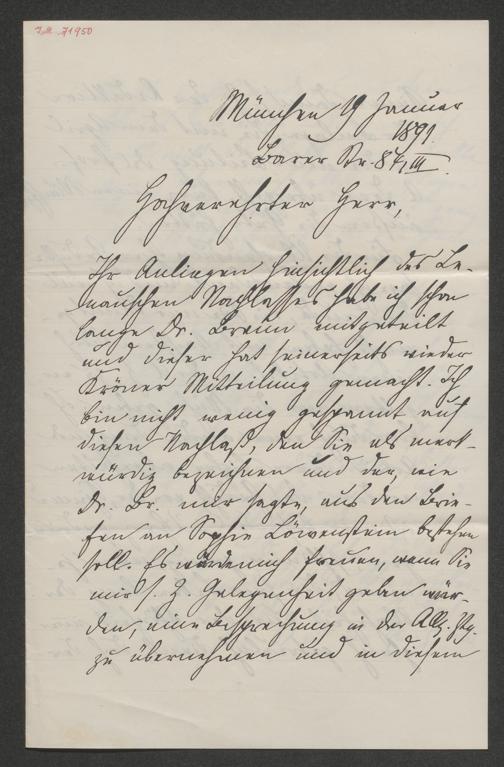 I.N. 71950
München 19 Januar
1891.
Barer Str. 84/III.
Hochverehrter Herr,
Ihr Anliegen hinsichtlich des Le-
nauschen Nachlasses habe ich schon
lange Dr. Braun mitgeteilt
und dieser hat seinerseits wieder
Kröner Mitteilung gemacht. Ich
bin nicht wenig gespannt auf
diesen Nachlaß, den Sie als merk-
würdig bezeichnen und der, wie
Dr. Br. mir sagte, aus den Brie-
fen an Sophie Löwenstein bestehen
soll. Es würde mich freuen, wenn Sie
mir s. Z. Gelegenheit geben wür-
den, eine Besprechung in der Allg. Ztg.
zu übernehmen und in diesem